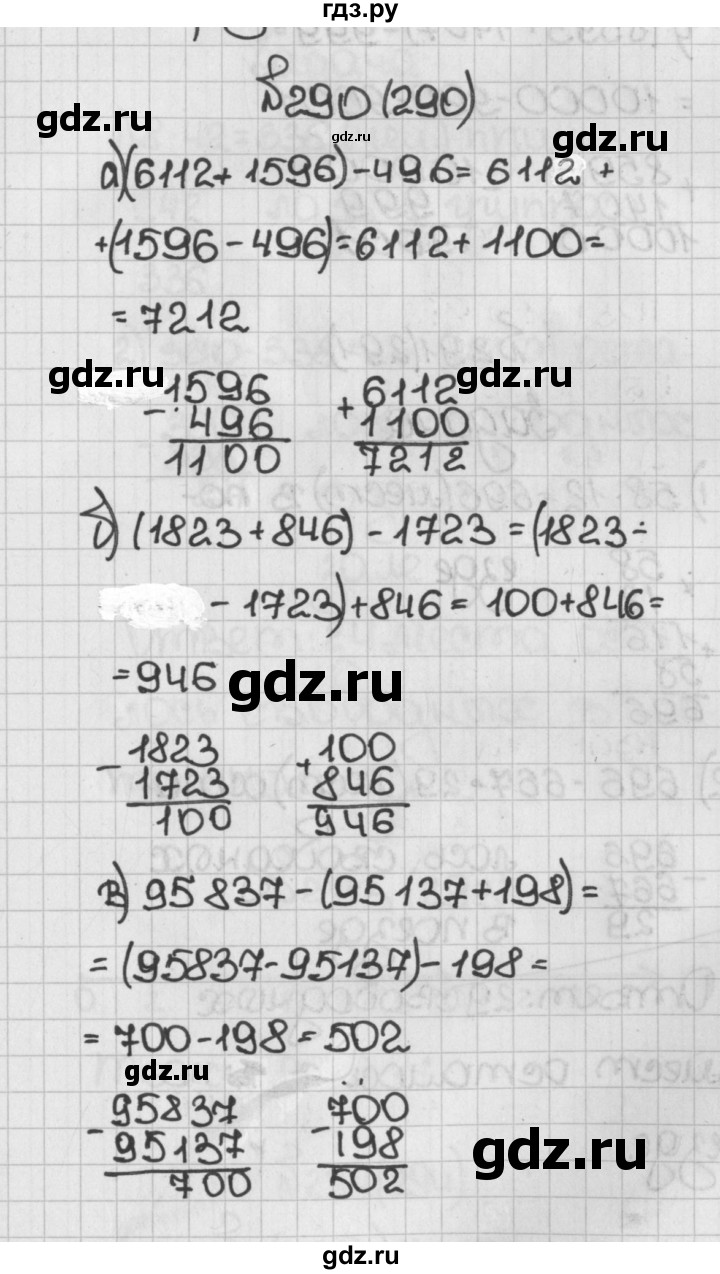 гдз.ру
№290 (290)
gdz.ru
gdz.ru
gdz.ru
а) (6112 + 1596) - 496 = 6112 +
+ (1596 - 496) = 6112 + 1100 =
= 7212
gdz.ru
gdz.ru
- 1596
496
1100
+ 6112
1100
7212
б) (1823 + 846) - 1723 = (1823 -
- 1723) + 846 = 100 + 846 =
= 946
gdz.ru
- 1823
1723
100
+ 100
846
946
в) 95 837 - (95 137 + 198) =
= (95837 - 95137) - 198 =
= 700 - 198 = 502
gdz.ru
- 95837
95137
700
- 700
198
502
gdz.ru
gdz.ru